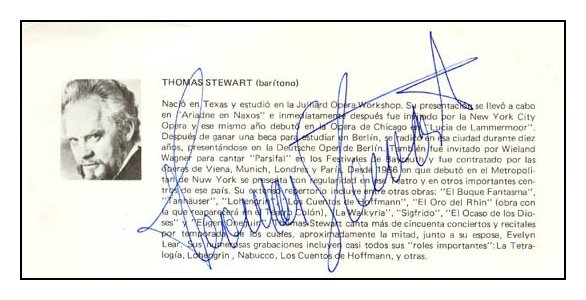 THOMAS STEWART (barítono)
Nació en Texas y estudió en la Julliard Opera Workshop. Su presentación se llevó a cabo
en "Ariadne en Naxos" e inmediatamente después fue invitado por la New York City
Opera y ese mismo año debutó en la Opera de Chicago en "Lucia de Lammermoor".
Después de ganar una beca para estudiar en Berlín, se radicó en esa ciudad durante diez
años, presentándose en la Deutsche Oper de Berlín. También fue invitado por Wieland
Wagner para cantar "Parsifal" en los Festivales de Bayreuth y fue contratado por las
Operas de Viena, Munich, Londres y París. Desde 1966 en que debutó en el Metropoli-
tan de Nueva York se presenta con regularidad en ese teatro y en otros importantes cen-
tros de ese país. Su extenso repertorio incluye entre otras obras: "El Buque Fantasma",
"Tanhäuser", "Lohengrin", "Los Cuentos de Hoffmann", "El Oro del Rhin" (obra con
la que reaparecerá en el Teatro Colón), "La Walkyria", "Sigfrido", "El Ocaso de los Dio-
ses" y "Eugen Oneguin". Thomas Stewart canta más de cincuenta conciertos y recitales
por temporada, de los cuales, aproximadamente la mitad, junto a su esposa, Evelyn
Lear. Sus numerosas grabaciones incluyen casi todos sus "roles importantes": La Tetra-
logía, Lohengrin, Nabucco, Los Cuentos de Hoffmann, y otras.
Thomas Stewart